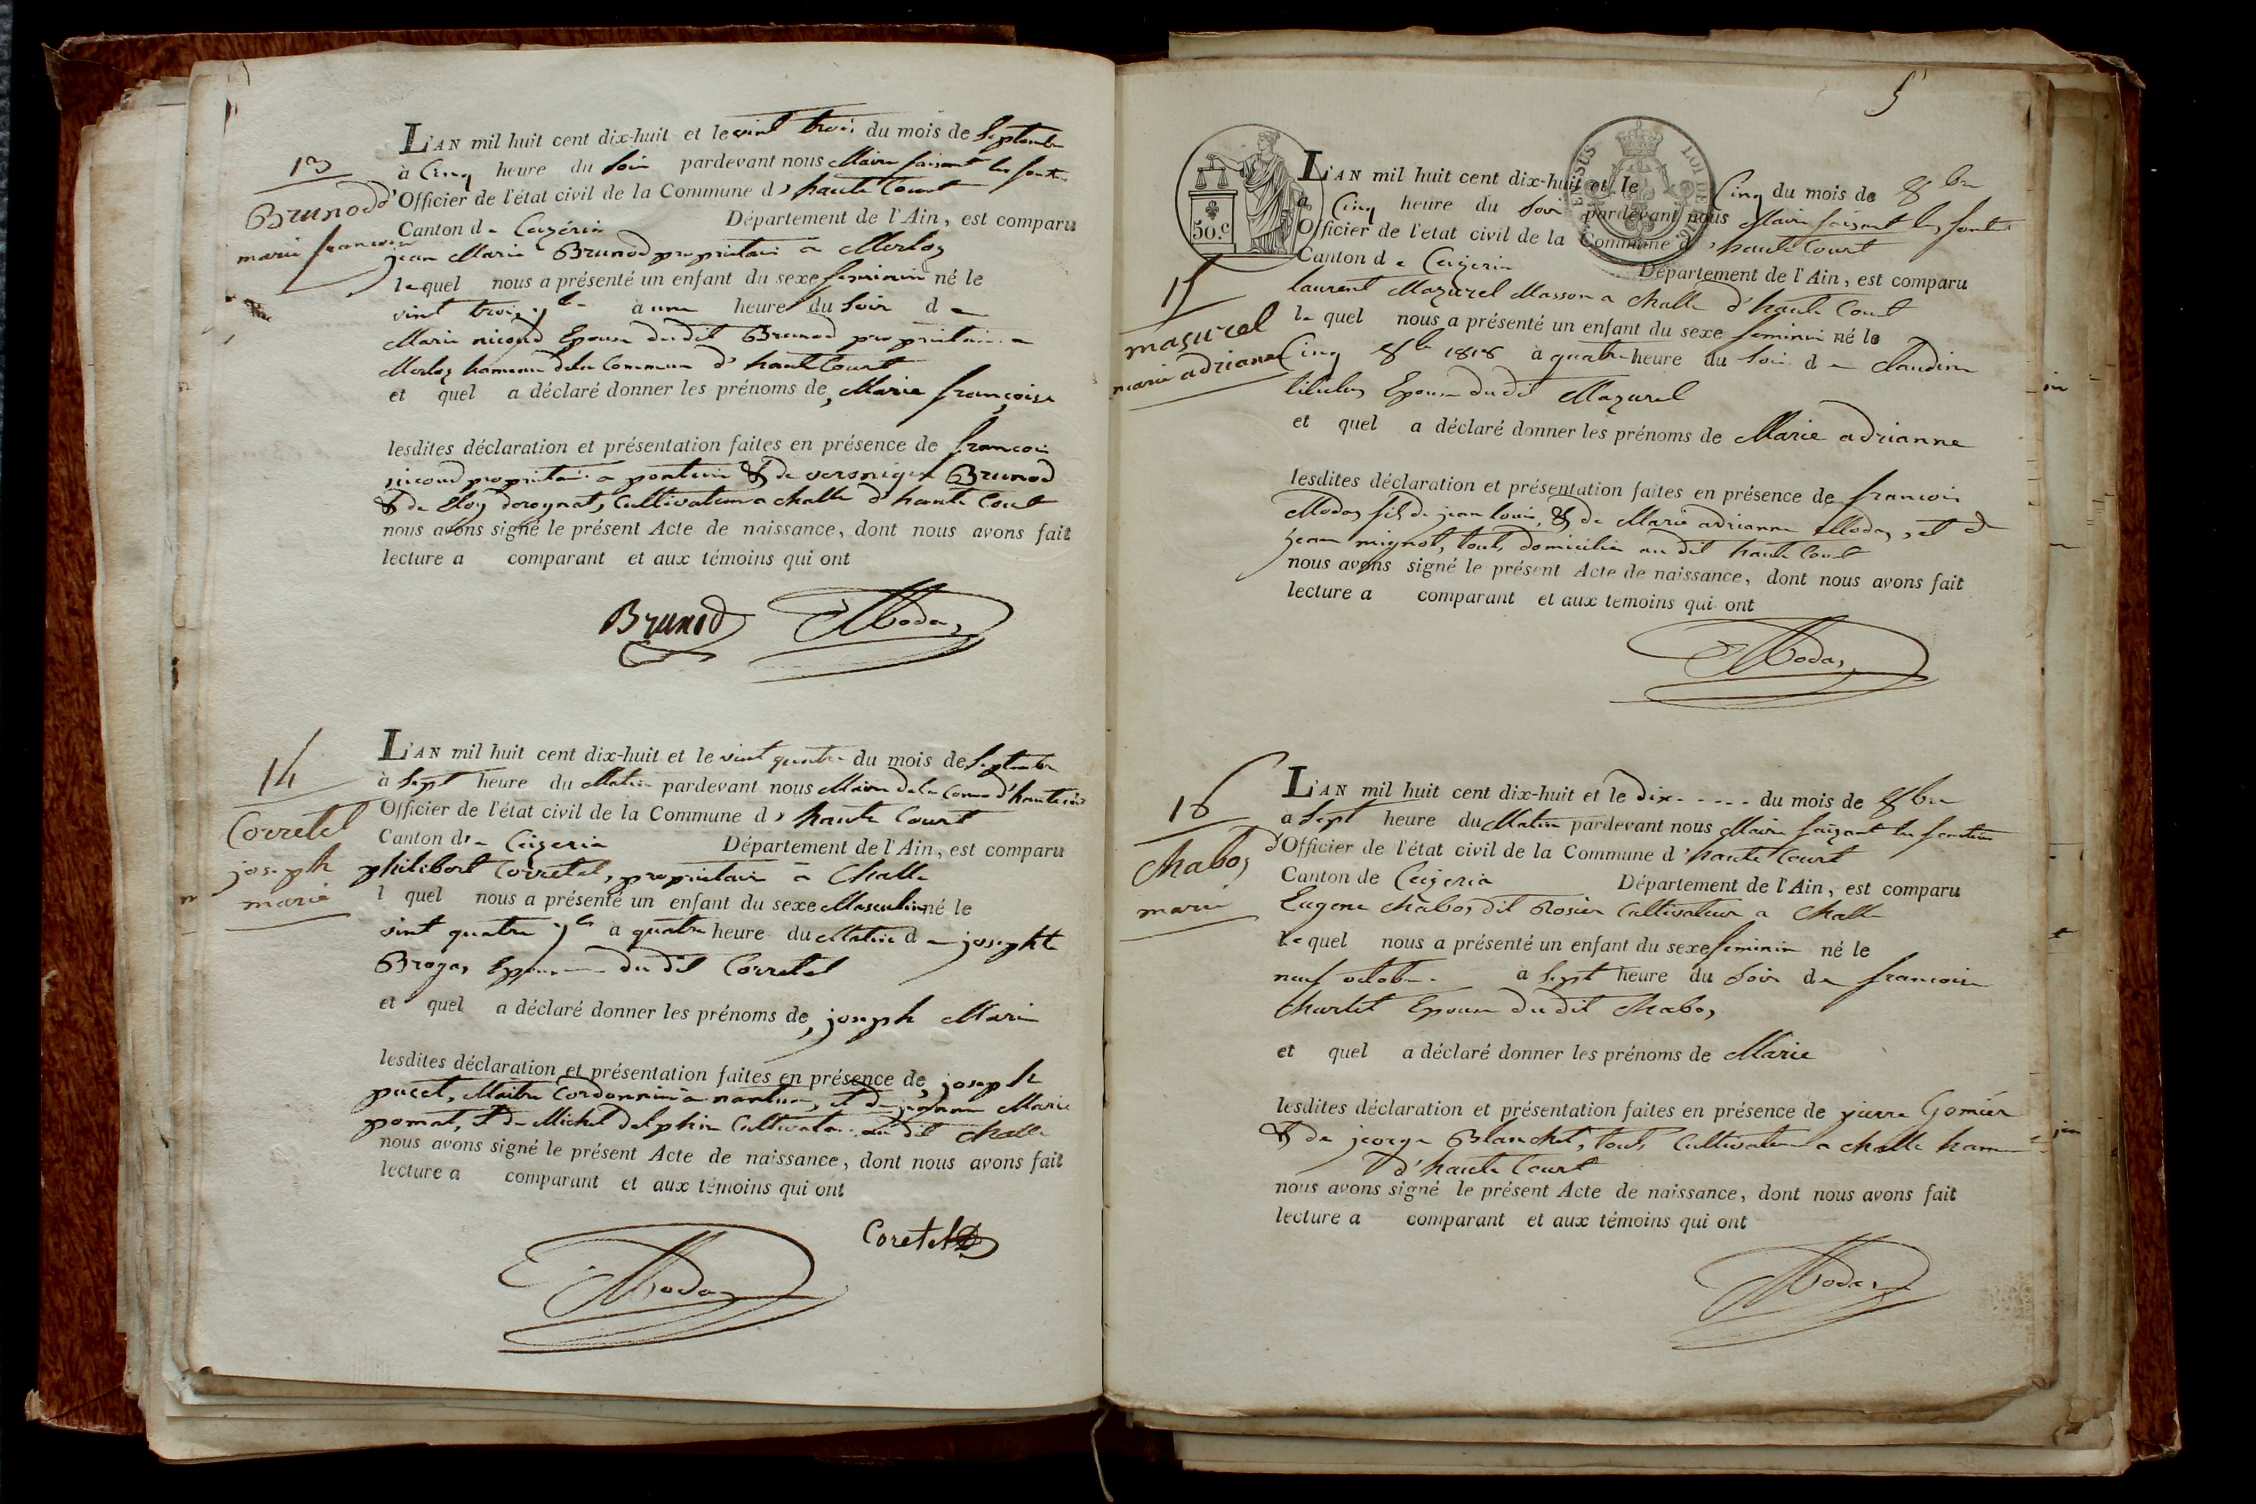 13
Brunod
marie francoise
L'AN mil huit cent dix-huit et le vint trois du mois de Septembre
à Cinq heure du Soir pardevant nous Maire faisant les fonct.
d'Officier de l'état civil de la Commune d' haute Court
Canton de Ceizeria Département de l'Ain, est comparu
jean Marie Brunod propriétaire a Merloz
le quel nous a présenté un enfant du sexe feminin né le
vint trois 7bre à une heure du Soir de
Marie nicoud Epouse du dit Brunod propriétaire a
Merloz hameau de la Commune d' haute Court
et quel a déclaré donner les prénoms de Marie françoise
lesdites déclaration et présentation faites en présence de francois
nicoud propriétaire a & de Brunod
& de Eloy dorognat, Cultivateur a Challe d'haute Court
nous avons signé le présent Acte de naissance, dont nous avons fait
lecture a comparant et aux témoins qui ont
Brunod Modas
14
Corretel
joseph
marie
L'AN mil huit cent dix-huit et le vint quatre du mois de Septembre
à Sept heure du Matin pardevant nous Maire de la Comne d'hautecour
Officier de l'état civil de la Commune d' haute Court
Canton de Ceizeria Département de l'Ain, est comparu
philibert Corretel, propriétaire à Challe
l quel nous a présenté un enfant du sexe Masculin né le
vint quatre 7bre à quatre heure du Matin de josephte
Broyas Epouse du dit Corretel
et quel a déclaré donner les prénoms de joseph Marie
lesdites déclaration et présentation faites en présence de joseph
pucet, Maitre Cordonnier a nantua, et de Marie
pomat, et de Michel delphin Cultivateur au dit Challe
nous avons signé le présent Acte de naissance, dont nous avons fait
lecture a comparant et aux témoins qui ont
Coretel
Modas
5
50.c
LOI DE 1816
15
mazurel
marie adrianne
L'AN mil huit cent dix-huit et le Cinq du mois de 8bre
a Cinq heure du Soir pardevant nous Maire faisant les fonct.
Officier de l'état civil de la Commune d' haute Court
Canton de Ceizeria Département de l'Ain, est comparu
laurent Mazurel Masson a Challe d'haute Court
le quel nous a présenté un enfant du sexe feminin né le
Cinq 8bre 1818 à quatre heure du Soir de Claudine
Epouse du dit Mazurel
et quel a déclaré donner les prénoms de Marie adrianne
lesdites déclaration et présentation faites en présence de francois
Modas fils de jean louis, & de Marie adrianne Modas, et de
jean mignot, tous domiciliés au dit haute Court
nous avons signé le présent Acte de naissance, dont nous avons fait
lecture a comparant et aux témoins qui ont
Modas
16
Chabos
marie
L'AN mil huit cent dix-huit et le dix - - - - - du mois de 8bre
a Sept heure du Matin pardevant nous Maire faizant les fonction
d'Officier de l'état civil de la Commune d' haute Court
Canton de Ceizeria Département de l'Ain, est comparu
Eugene Chabos dit Rosier Cultivateur a Challe
le quel nous a présenté un enfant du sexe feminin né le
neuf octobre à Sept heure du Soir de francoise
Charlet Epouse du dit Chabos
et quel a déclaré donner les prénoms de Marie
lesdites déclaration et présentation faites en présence de pierre Gomier
& de jeorge Blanchet, tous Cultivateur a Challe hameau
d'haute Court
nous avons signé le présent Acte de naissance, dont nous avons fait
lecture a comparant et aux témoins qui ont
Modas